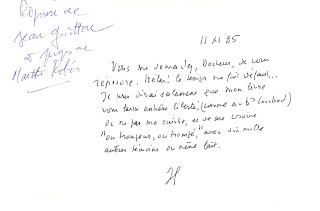 Réponse de
Jean Guitton
à propos de
Marthe Robin
11 XI 85
Vous me demandez, Docteur, de vous
répondre. Hélas! le temps me fait défaut...
Je vous dirai seulement que mon livre
vous laisse entière liberté
ou ne pas me suivre, et de me croire
"ou trompeur, ou trompé", avec dix mille
autres témoins du même fait.